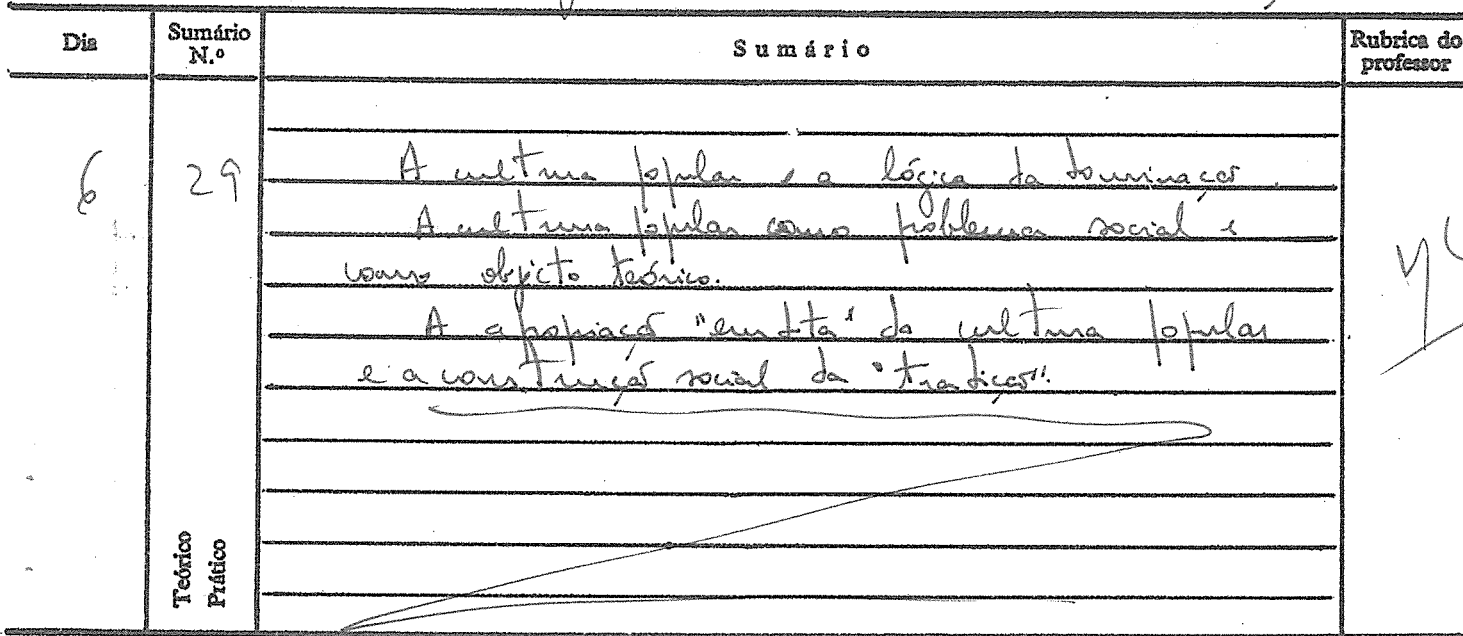 Dia Sumário N.º Sumário Rubrica do professor
6 29 A cultura popular e a lógica da dominação.
A cultura popular como problema social e
como objecto teórico.
A apropriação "erudita" da cultura popular
e a construção social da "tradição".
Teórico
Prático